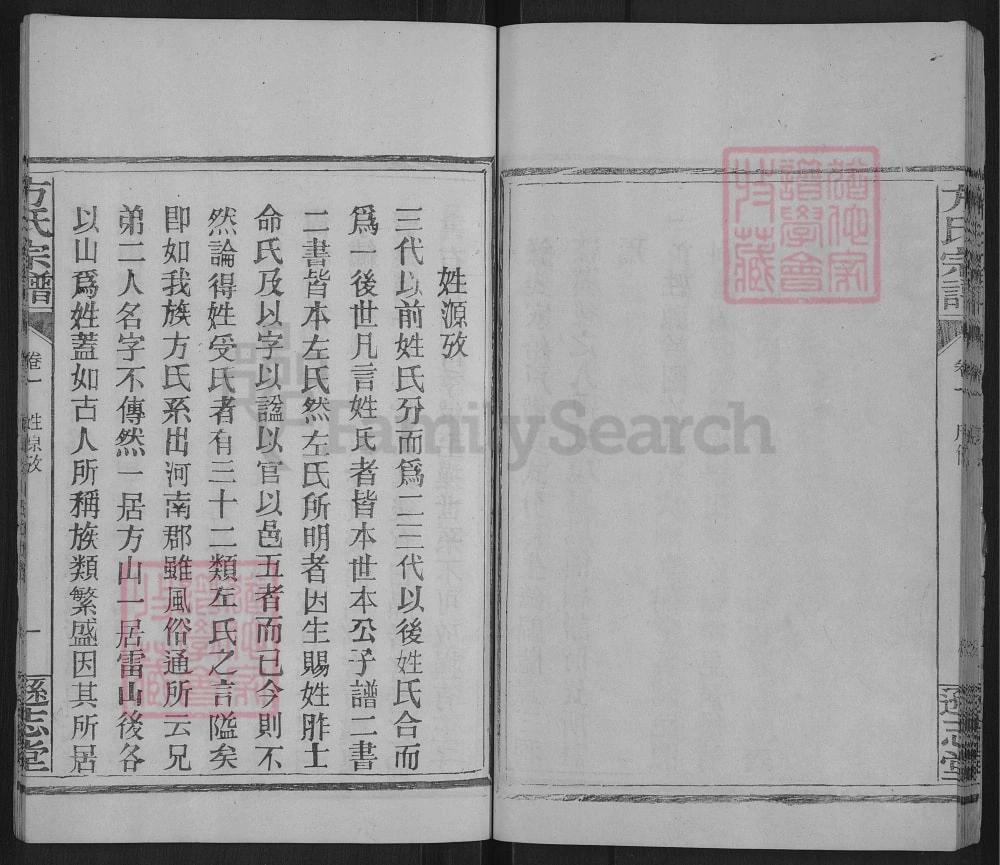 方氏宗譜
卷一
遜志堂
姓源攷
三代以前姓氏分而爲二三代以後姓氏合而
爲一後世凡言姓氏者皆本世本公子譜二書
二書皆本左氏然左氏所明者因生賜姓胙土
命氏及以字以諡以官以邑五者而已今則不
然論得姓受氏者有三十二類左氏之言隘矣
卽如我族方氏系出河南郡雖風俗通所云兄
弟二人名字不傳然一居方山一居雷山後各
以山爲姓蓋如古人所稱族類繁盛因其所居
方氏宗譜
卷一 姓源攷
一
遜志堂
FamilySearch